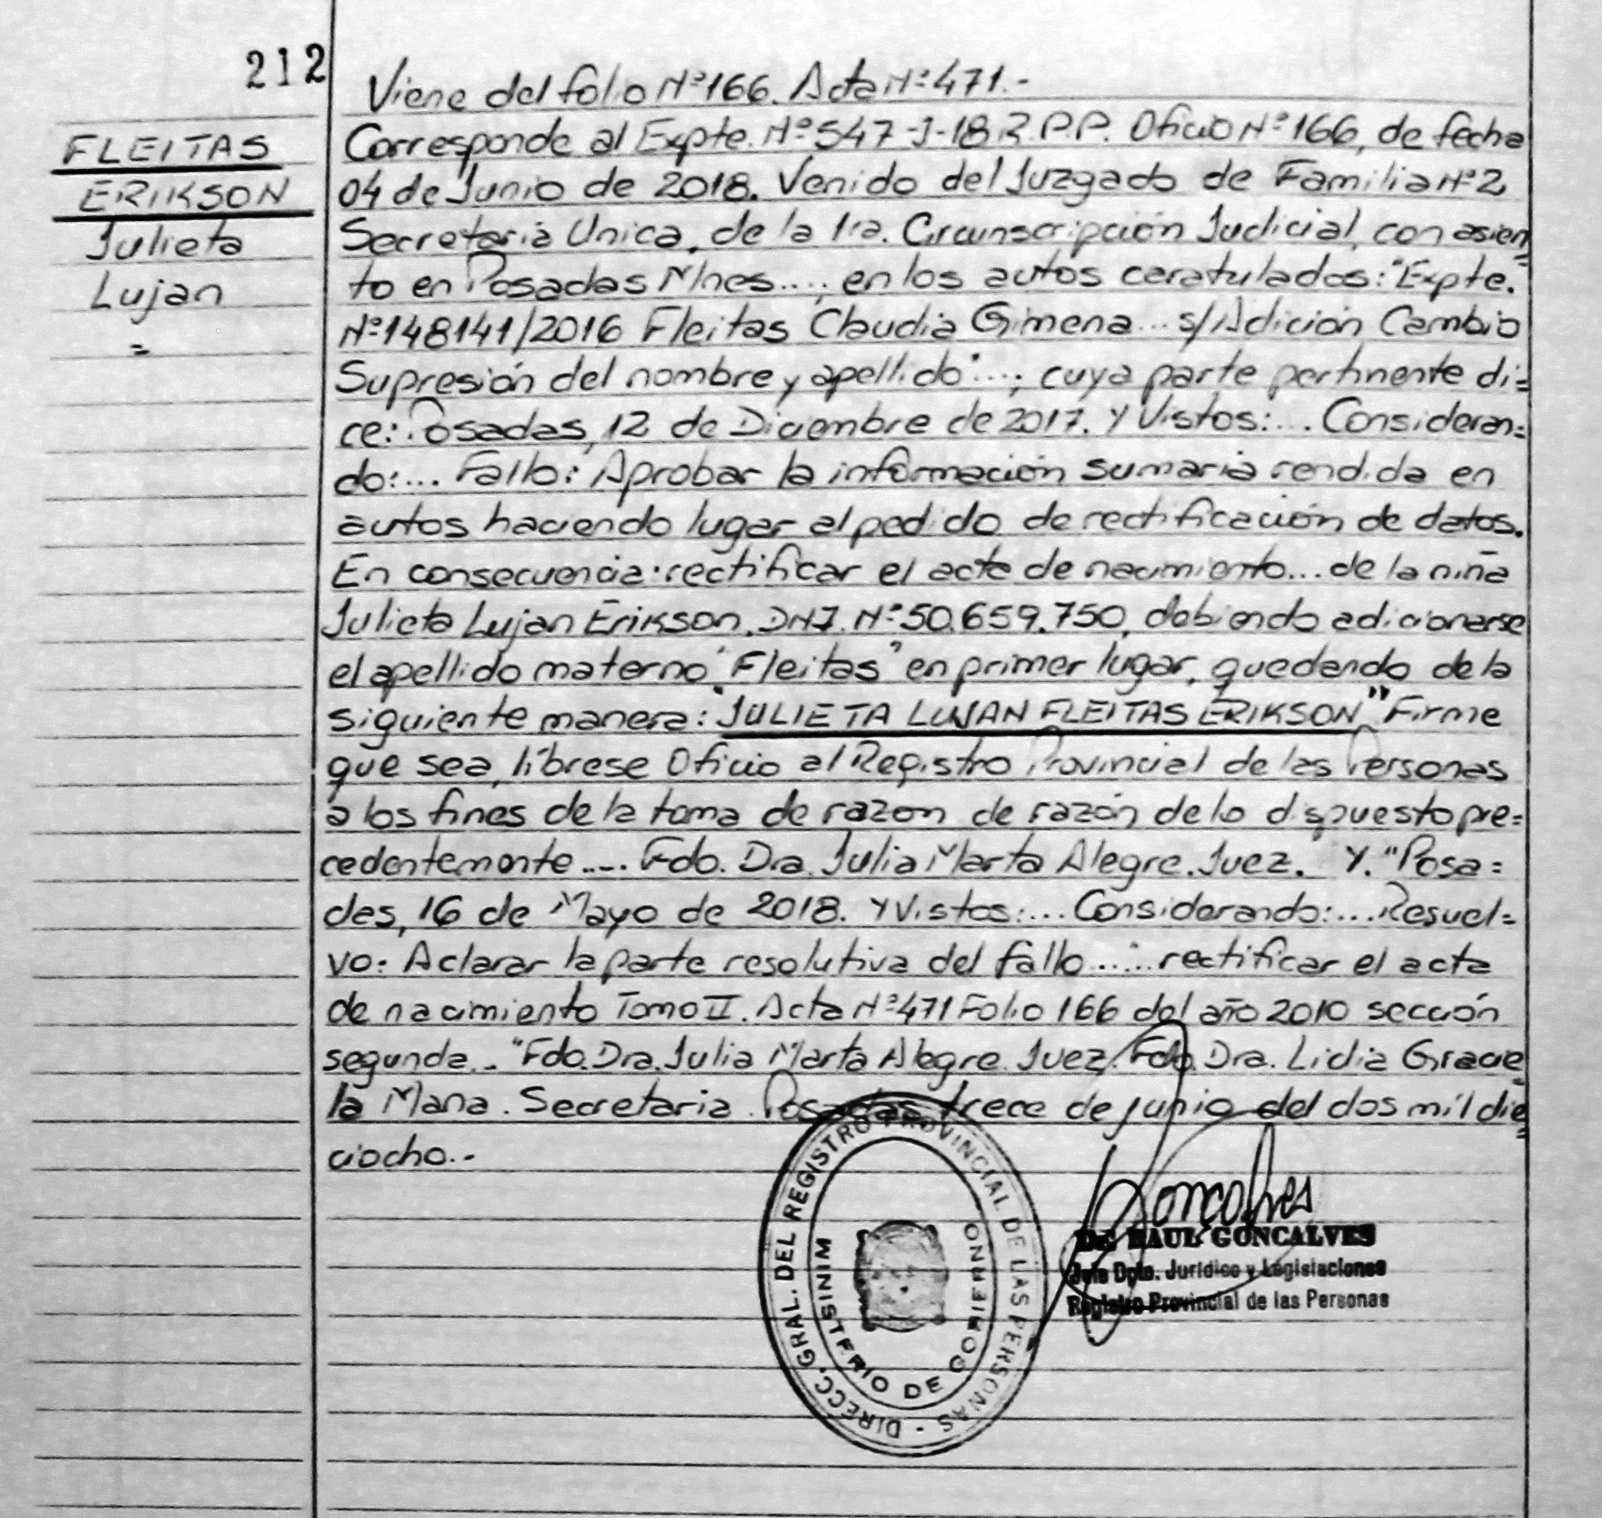 212
FLEITAS
ERIKSON
Julieta
Lujan
=
Viene del folio Nº166. Acta Nº471.-
Corresponde al Expte. Nº547-J-18 R.P.P. Oficio Nº166, de fecha
04 de Junio de 2018. Venido del Juzgado de Familia Nº2,
Secretaria Unica, de la 1ra. Circunscripción Judicial, con asien=
to en Posadas Mnes....; en los autos caratulados: "Expte.
Nº148141/2016 Fleitas Claudia Gimena... s/Adición Cambio
Supresión del nombre y apellido"...; cuya parte pertinente di=
ce: Posadas, 12 de Diciembre de 2017. Y Vistos:... Consideran=
do:... Fallo: Aprobar la información sumaria rendida en
autos haciendo lugar al pedido de rectificación de datos.
En consecuencia: rectificar el acta de nacimiento... de la niña
Julieta Lujan Erikson, DNI. Nº50.659.750, debiendo adicionarse
el apellido materno "Fleitas" en primer lugar, quedando de la
siguiente manera: "JULIETA LUJAN FLEITAS ERIKSON" Firme
que sea, líbrese Oficio al Registro Provincial de las Personas
a los fines de la toma de razon de razón de lo dispuesto pre=
cedentemente.... Fdo. Dra. Julia Marta Alegre. Juez." Y. "Posa=
das, 16 de Mayo de 2018. Y Vistos:... Considerando:... Resuel=
vo: Aclarar la parte resolutiva del fallo..... rectificar el acta
de nacimiento Tomo II. Acta Nº471 Folio 166 del año 2010 sección
segunda.." Fdo. Dra. Julia Marta Alegre. Juez. Fdo. Dra. Lidia Gracie=
la Mana. Secretaria. Posadas, trece de junio del dos mil die=
ciocho.-
DIRECC. GRAL. DEL REGISTRO PROVINCIAL DE LAS PERSONAS -
MINISTERIO DE GOBIERNO
Goncalves
Dr. RAUL GONCALVES
Jefe Dpto. Jurídico y Legislaciones
Registro Provincial de las Personas